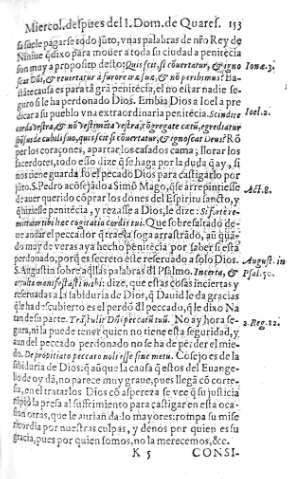 Miercol. despues del 1. Dom. de Quares. 153
sa suele pagarse todo jũto, vnas palabras de nr̃o Rey de
Niniue q̃dixo para mouer a toda su ciudad a penitẽcia
son muy a proposito desto: Quis scit si cõuertatur, & igno
scat Deus, & reuertatur à furore iræ suæ, & nõ peribimus? Ba-
Ionæ 3.
esta causa es para tã grã penitẽcia, el no estar nadie se-
guro si le ha perdonado Dios. Embia Dios a Ioel a pre
dicar a su pueblo vna extraordinaria penitẽcia. Scindite
Ioel. 2.
corda vestra, & nõ vestimẽta vestra, cõgregate cœtũ, egrediatur
sponsus de cubili suo, quis scit si cõuertatur, & ignoscat Deus? Rõ
per los corazones, apartar los casados cama; llorar los
sacerdotes, todo esso dize q̃ se haga por la duda q̃ ay, si
nos tiene guardado el peccado Dios para castigarlo por
jũto. S. Pedro acõsejãdo a Simõ Mago, q̃ se arrepintiesse
Act. 8.
de auer querido cõprar los dones del Espiritu sancto, y
q̃ hiziesse penitẽcia, y rezasse a Dios, le dize: Si forte re-
mittatur tibi hæc cogitatio cordis tui. Que sobresaltado de-
ue andar el peccador q̃ trae la soga arrastrãdo, aũ quã-
do muy de veras aya hecho penitẽcia por saber si està
perdonado, porq̃ es secreto este reseruado a solo Dios.
August. in
S. Augustin sobre aq̃llas palabras dl̃ Psalmo. Incerta, &
Psal. 50.
occulta manifestasti mihi: dize, que estas cosas inciertas y
reseruadas a la sabiduria de Dios, q̃ Dauid le da gracias
q̃ le ha descubierto es el perdõ dl̃ peccado, q̃ le dixo Na
tan de su parte. Trãstulit Dñs peccatũ tuũ. No ay hora se-
2. Reg. 12.
gura, ni la puede tener quien no tiene esta seguridad, y
aun del peccado perdonado no se ha de pẽrder el mie-
do. De propitiato peccato noli esse sine metu. Cõsejo es de la
sabiduria de Dios: q̃ aũ que la causa q̃ estos del Euange-
lio de oy dã, no parece muy graue, pues llegã cõ corte-
sia, en el tratarlos Dios cõ aspereza se vee q̃ su justicia
rõpiò la presa al suffrimiento para castigar en esta oca-
sion otras, que le auriã da lo mayores: rompa su mise
ricordia por nuestras culpas, y denos por quien es su
gracia, pues por quien somos, no la merecemos, &c.
K 5 CONSI-